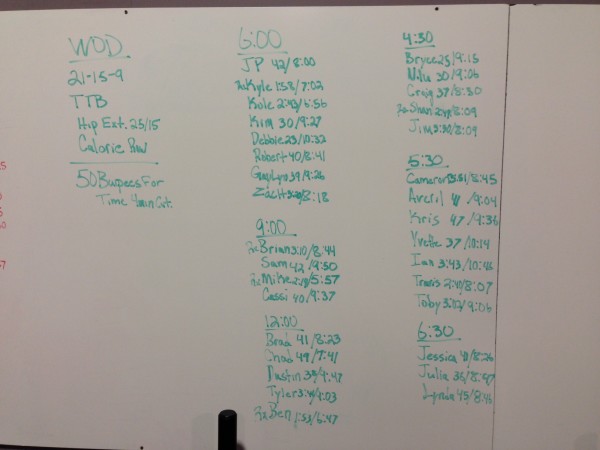 WOD
21-15-9
TTB
Hip Ext. 25/15
Calorie Row
50 Burpees For
Time 4min Cut.
6:00
JP 42/8:00
Rx Kyle 1:58/7:02
Kole 2:42/6:56
Kim 30/9:27
Debbie 23/10:32
Robert 40/8:41
39/9:26
Zach 8:18
9:00
Rx Brian 3:10/8:44
Sam 42/9:50
Rx Mike 5:57
Cassi 40/9:37
12:00
Brad 41/8:23
Chad 49/7:41
Dustin
Tyler 9:03
Rx Ben 1:53/6:47
4:30
Bryce 25/9:15
30/9:06
Craig 37/8:30
Rx Shan 8:09
Jim 3:30/8:09
5:30
Cameron 8:45
Averil 41/9:04
Kris 47/9:36
Yvette 37/10:14
Ian 3:43/10:46
Travis 2:40/8:07
Toby 3:02/9:06
6:30
Jessica 41/8:26
Julie
45/8:46